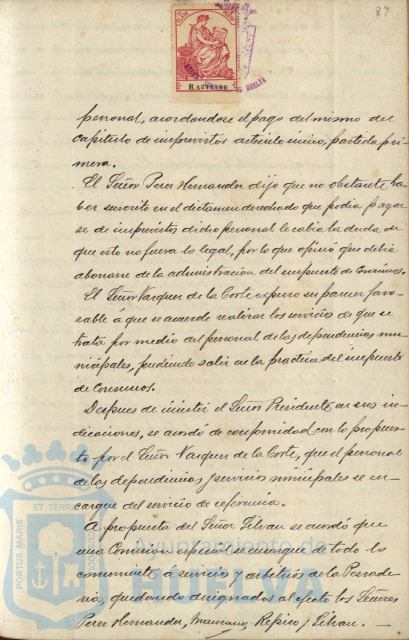 87
personal, acordandose el pago del mismo del
capitulo de imprevistos articulo único, partida pri-
mera.
El Señor Perez Hernandez dijo que no obstante ha-
ber suscrito en el dictamen que podia pagar
se de imprevistos dicho personal le cabia la duda de
que esto no fuera lo legal, por lo que opinó que debia
abonarse de la administración del impuesto de Consumos.
El Señor Vazquez de la Corte expuso su parecer favo-
rable á que se acuerde realizar los servicios de que se
trata por medio del personal de las dependencias mu-
nicipales, pudiendo salir en la practica del impuesto
de Consumos.
Despues de insistir el Señor Presidente en sus in-
dicaciones, se acordó de conformidad con lo propues-
to por el Señor Vazquez de la Corte, que el personal
de las dependencias y servicios municipales se en-
cargue del servicio de referencia.
A propuesta del Señor se acordó que
una Comision especial se encargue de todo lo
concerniente á servicios y arbitrios de la Pescade-
ria, quedando designados al efecto los Señores
Perez Hernandez, y
PORTUS MARIS ET TERRAE
Ayuntamiento de